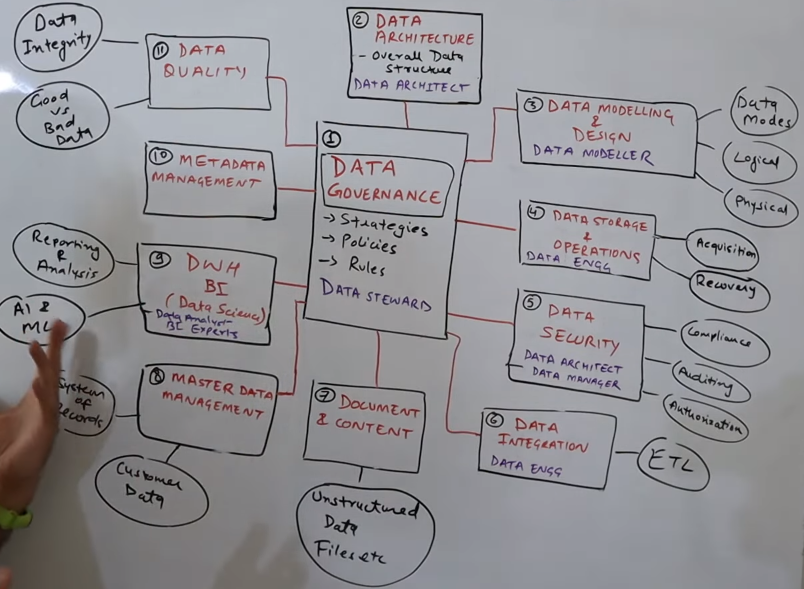 ① DATA
GOVERNANCE
→ Strategies
→ Policies
→ Rules
DATA STEWARD
② DATA
ARCHITECTURE
- Overall Data
Structure
DATA ARCHITECT
③ DATA MODELLING
&
DESIGN
DATA MODELLER
Data
Modes
Logical
Physical
④ DATA STORAGE
&
OPERATIONS
DATA ENGG
Acquisition
Recovery
⑤ DATA
SECURITY
DATA ARCHITECT
DATA MANAGER
Compliance
Auditing
Authorization
⑥ DATA
INTEGRATION
DATA ENGG
ETL
⑦ DOCUMENT
& CONTENT
Unstructured
Data
Files etc
⑧ MASTER DATA
MANAGEMENT
System
of
Records
Customer
Data
⑨ DWH
BI
(Data Science)
- Data Analyst
BI Experts
Reporting
&
Analysis
AI &
ML
⑩ METADATA
MANAGEMENT
⑪ DATA
QUALITY
Data
Integrity
Good
vs
Bad
Data